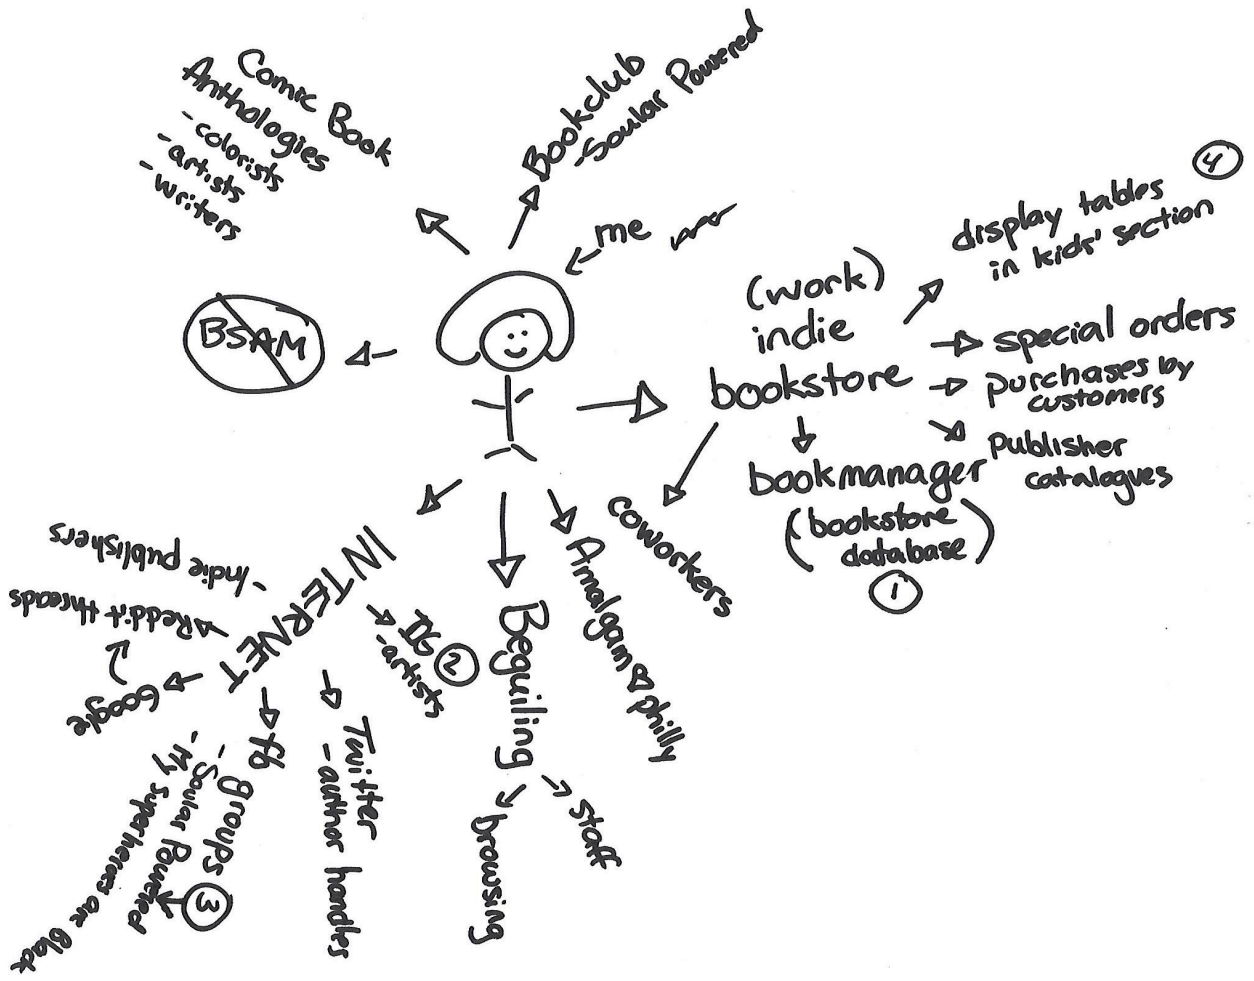 Comic Book
Anthologies
- colorists
- artists
- writers
Bookclub
- Soular Powered
me
BSAM
(work)
indie
bookstore
display tables
in kids' section
4
special orders
purchases by
customers
publisher
catalogues
bookmanager
(bookstore
database)
1
coworkers
Amalgam philly
Beguiling
staff
browsing
INTERNET
- Indie publishers
Reddit threads
Google
IG 2
- artists
Twitter
- author handles
fb
- groups
- Soular Powered
3
- My superheroes are Black